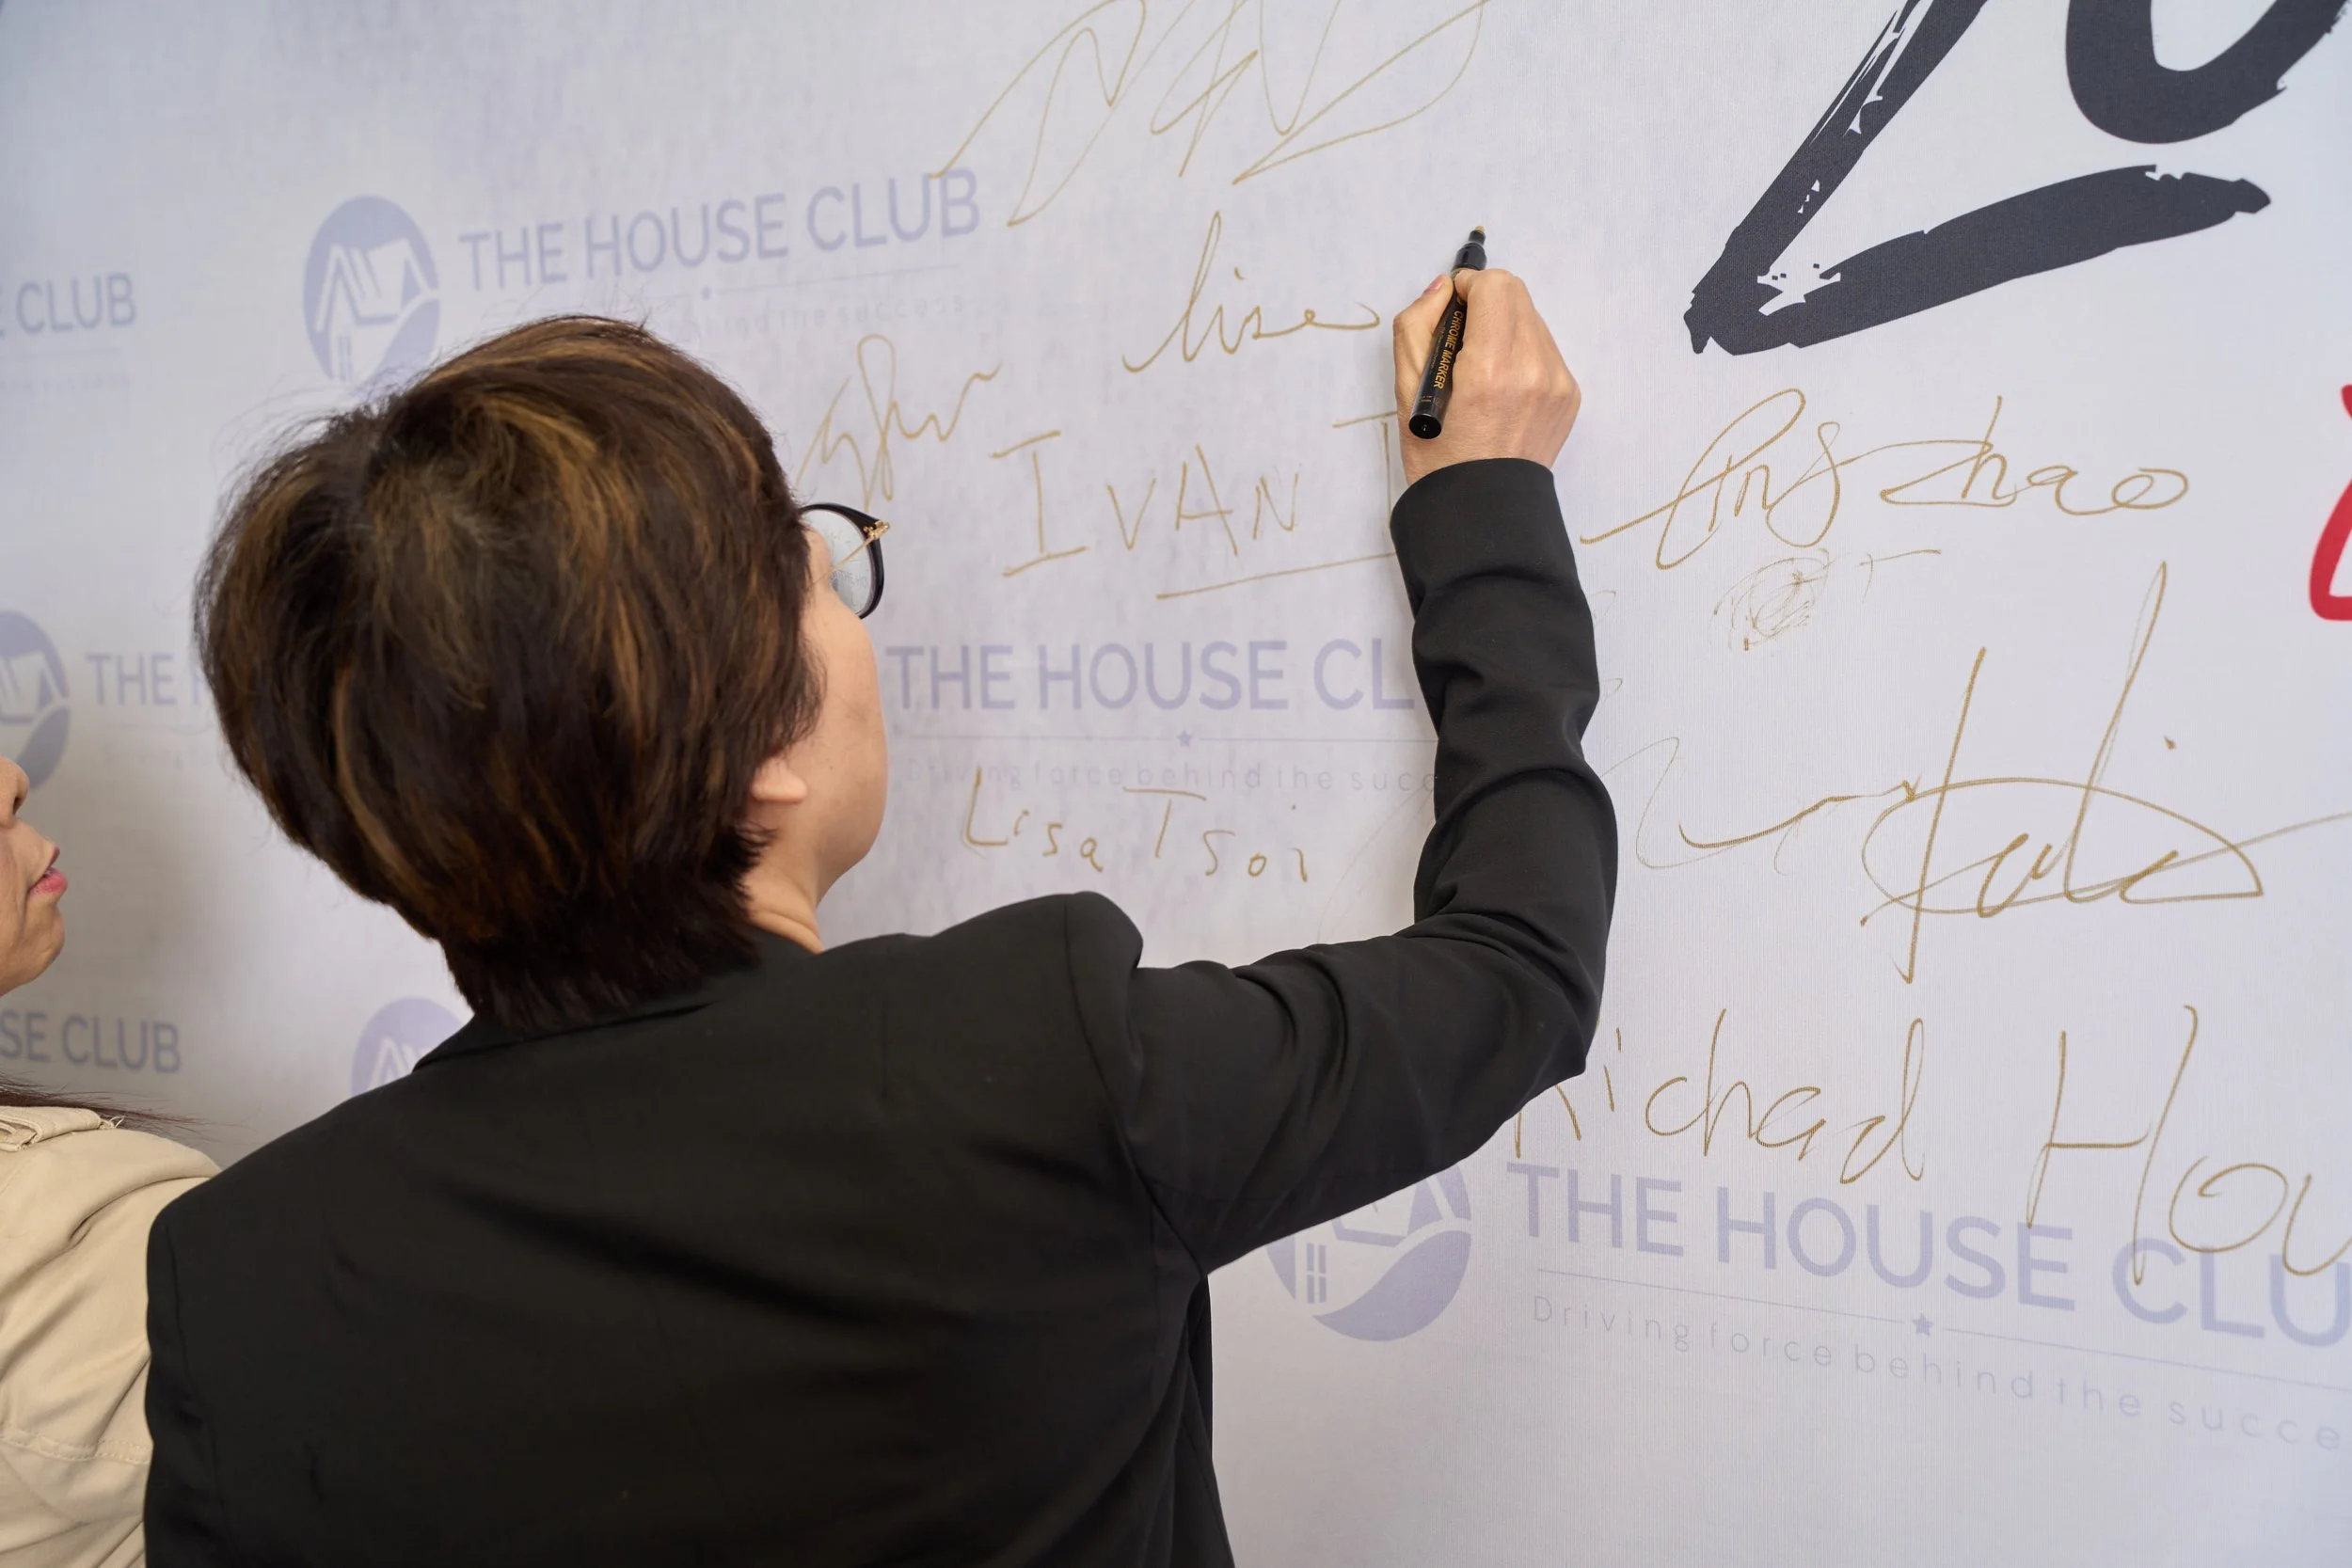 THE HOUSE CLUB
behind the success
lise
E CLUB
CHROME MARKER
IVAN T
Ping Zhao
THE H
THE HOUSE CL
Driving force behind the succ
Lisa Tsoi
SE CLUB
Richard Hou
THE HOUSE CLU
Driving force behind the succe